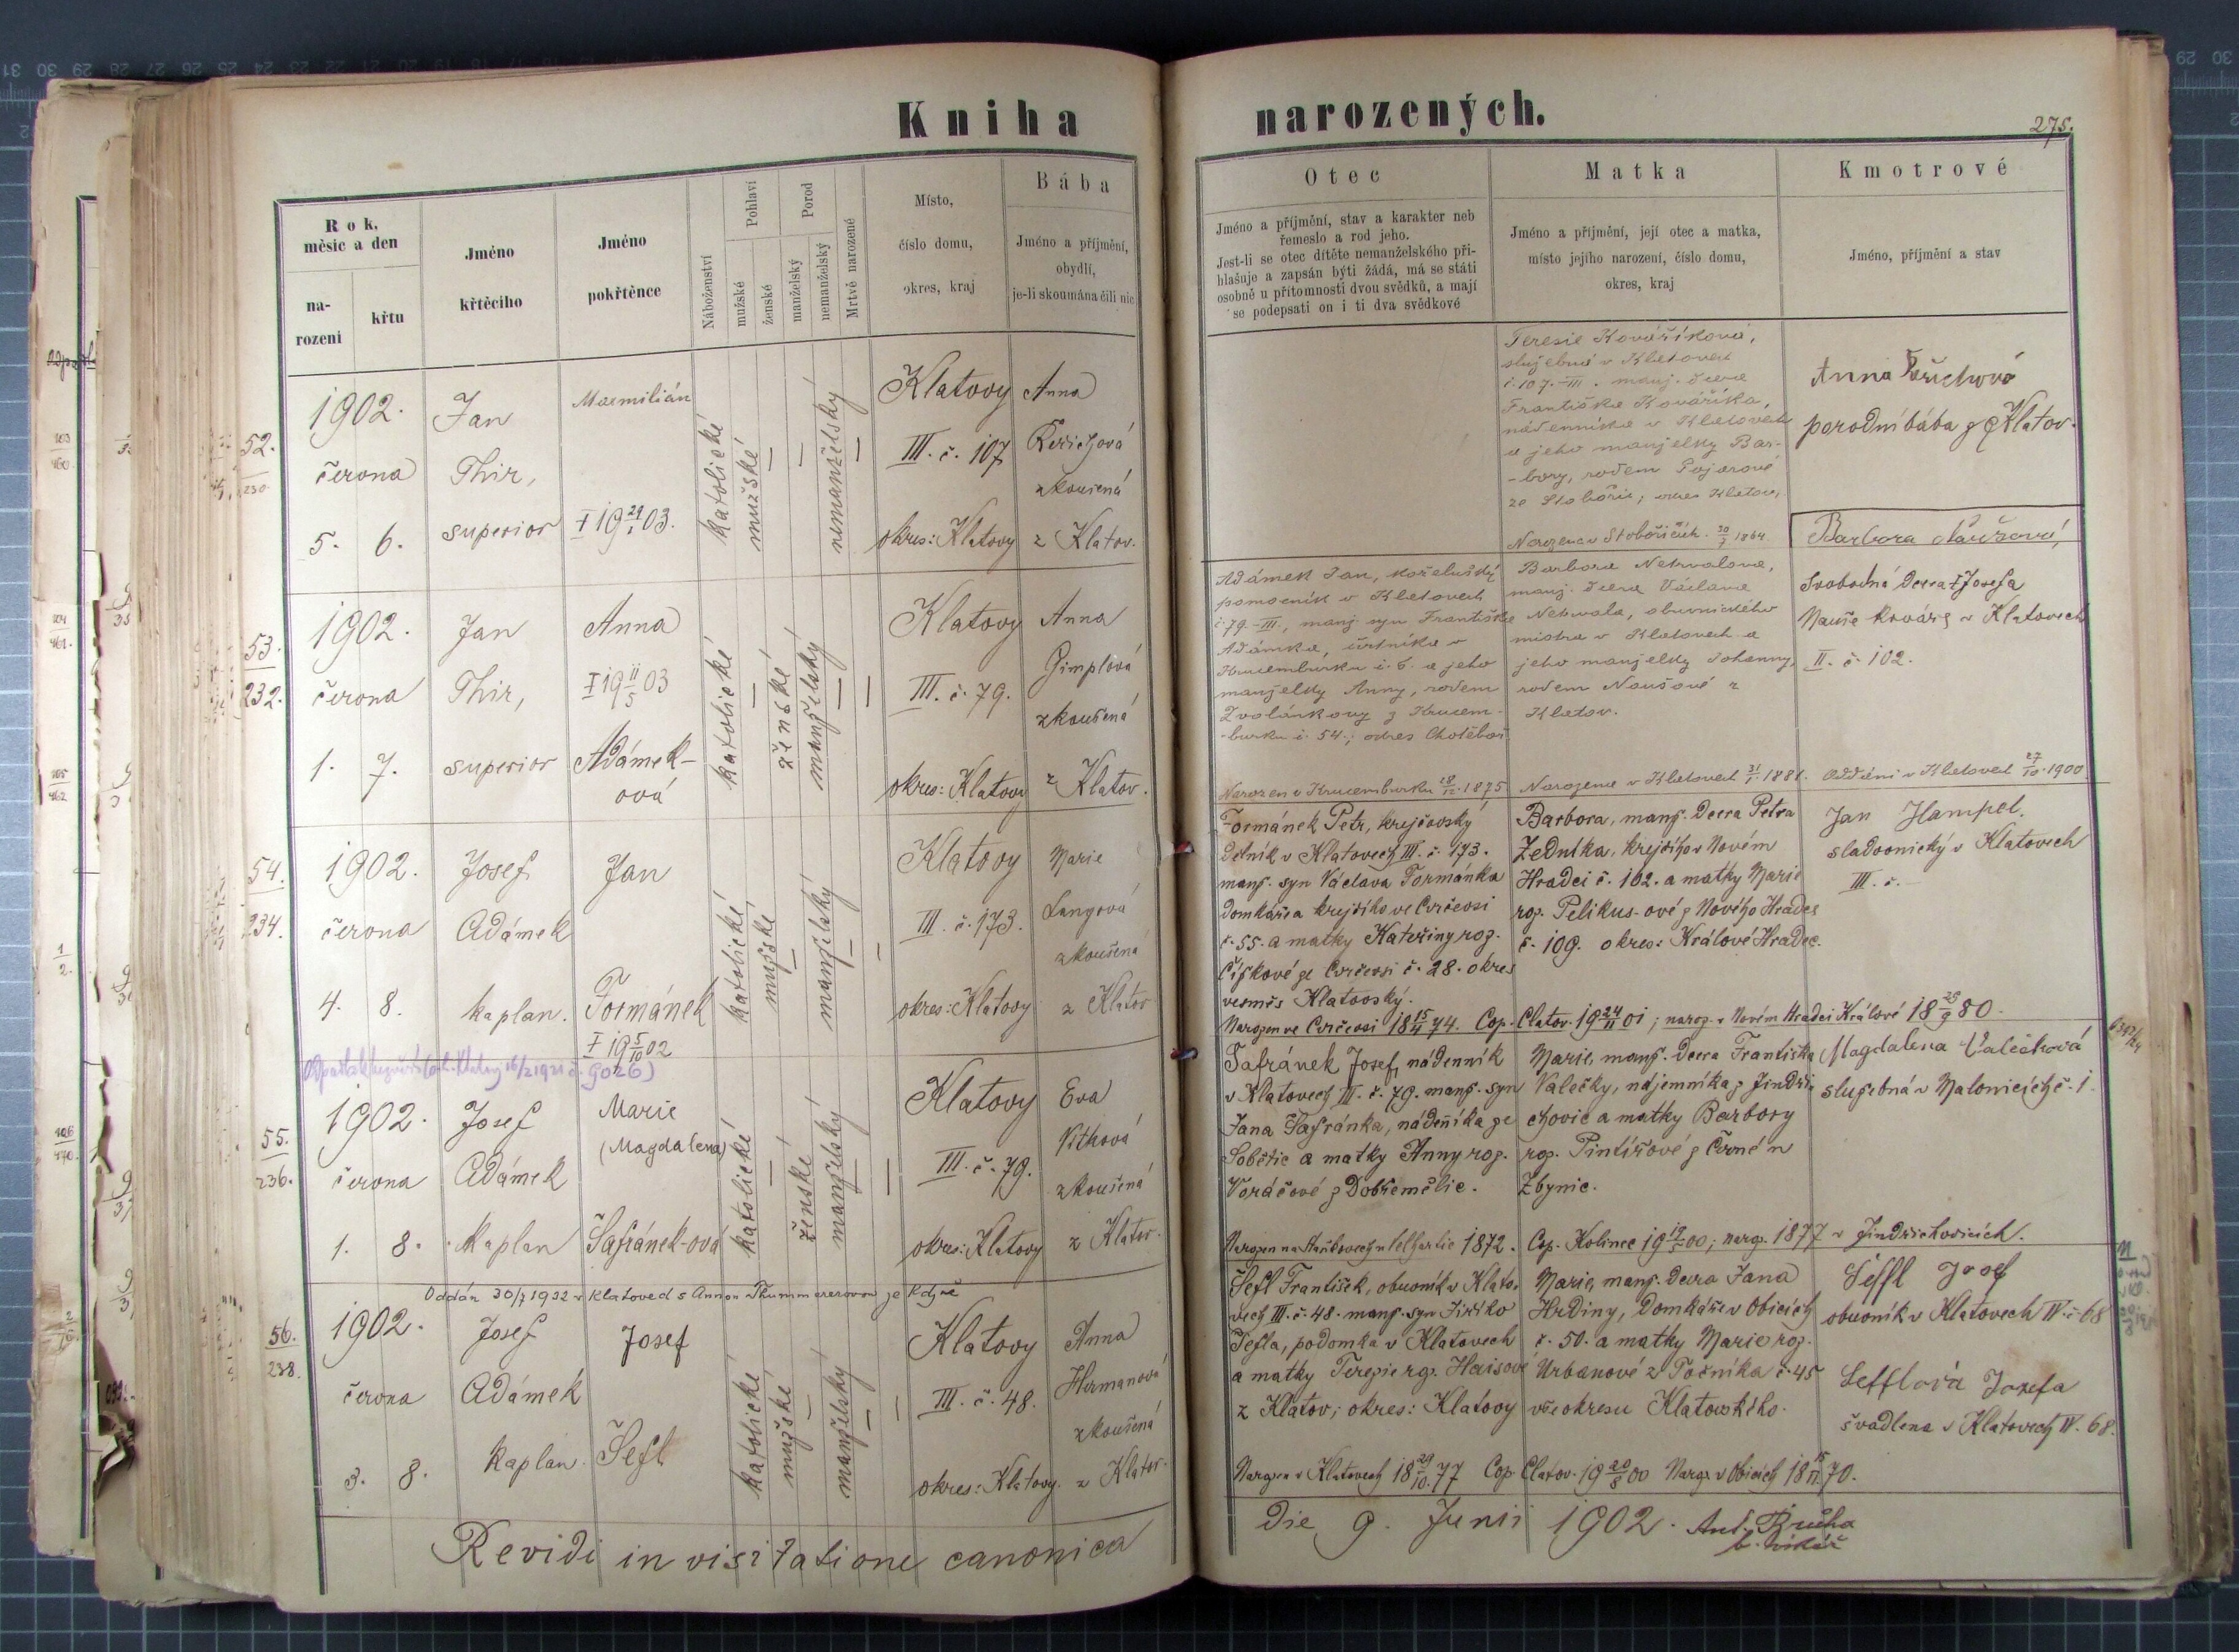 Kniha narozených.
275.
Rok, měsíc a den
na-
rozeni
křtu
Jméno
křtěcího
Jméno
pokřtěnce
Náboženství
Pohlaví
mužské
ženské
Porod
manželský
nemanželský
Mrtvě narozené
Místo,
číslo domu,
okres, kraj
Bába
Jméno a příjmění,
obydlí,
je-li skoumána čili nic
Otec
Jméno a příjmění, stav a karakter neb
řemeslo a rod jeho.
Jest-li se otec dítěte nemanželského při-
hlašuje a zapsán býti žádá, má se státi
osobně u přítomnosti dvou svědků, a mají
se podepsati on i ti dva svědkové
Matka
Jméno a příjmění, její otec a matka,
místo jejího narození, číslo domu,
okres, kraj
Kmotrové
Jméno, příjmění a stav
52.
230
1902.
června
5. 6.
Jan
Thir,
superior
Maxmilián
I 19 29/1 03.
katolické
mužské
nemanželský
Klatovy
III. č. 107
okres: Klatovy
Anna
zkoušená
z Klatov.
Teresie Kováříková,
služebná v Klatovech
č. 107.-III. manž. dcera
Františka Kováříka,
nádenníka v Klatovech
a jeho manželky Bar-
-bory, rodem Pojarové
ze Stobořic; okres Klatovy.
Narozena v Stobořicích
1864
Anna
porodní bába z Klatov.
53.
232.
1902.
června
1. 7.
Jan
Thir,
superior
Anna
I 19 11/5 03
Adámek-
ová
katolické
ženské
manželský
Klatovy
III. č. 79.
okres: Klatovy
Anna
Gimplová
zkoušená
z Klatov.
Adámek Jan, koželužský
pomocník v Klatovech
č. 79-III, manž. syn Františka
Adámka, v
Krucemburku č. 6. a jeho
manželky Anny, rodem
Zvolánkovy z Krucem-
-burku č. 54.; okres Chotěboř.
Narozen v Krucemburku 1875
Barbora Netrvalova,
manž. dcera Václava
Netrvala, obuvnického
mistra v Klatovech a
jeho manželky Johanny,
rodem Noušové z
Klatov.
Narozena v Klatovech 31/1. 1881.
Barbora Naušová,
Svobodná dcera † Josefa
Nauše kováře v Klatovech
II. č. 102.
Oddáni v Klatovech 27/10. 1900.
54.
234.
1902.
června
4. 8.
Josef
Adámek
kaplan.
Jan
Formánek
I 19 5/10 02
katolické
mužské
manželský
Klatovy
III. č. 173.
okres: Klatovy
Marie
Langová
zkoušená
z Klatov
Formánek Petr, krejčovský
dělník v Klatovech III. č. 173.
manž. syn Václava Formánka
domkáře a krejčího ve Cvrčovsi
č. 55. a matky Kateřiny roz.
Čížkové ze Cvrčovsi č. 28. okres
vesměs Klatovský.
Narozen ve Cvrčovsi 18 15/11 74. Cop. Clatov. 19 24/11 01; naroz. v Novém Hradci Králové 18 25/9 80.
Barbora, manž. dcera Petra
Zedníka, krejčího v Novém
Hradci č. 102. a matky Marie
roz. Pelikus-ové z Nového Hradce
č. 109. okres: Králové Hradec.
Jan Hampel.
sladovnický v Klatovech
III. č. -
55.
236.
1902.
června
1. 8.
Josef
Adámek
Kaplan
Marie
(Magdalena)
Šafránek-ová
katolické
ženské
manželský
Klatovy
III. č. 79.
okres: Klatovy
Eva
Vítková
zkoušená
z Klatov.
Šafránek Josef, nádenník
v Klatovech III. č. 79. manž. syn
Jana Šafránka, nádeníka ze
Sobětic a matky Anny roz.
Voráčové z Dobřeměřic.
1872. Cop. Kolinec 19 00; naroz. 1877 v Jindřichovicích.
Marie, manž. dcera Františka
Valečky, nájemníka z Jindři-
chovic a matky Barbory
roz. Pintířové z
Zbynic.
Magdalena Valečková
služebná v Malonicích č. 1.
Oddán 30/7 1932 v Klatovech s Annou Thummererovou ze Kdyně
56.
238.
1902.
června
3. 8.
Josef
Adámek
kaplan
Josef
Šefl
katolické
mužské
manželský
Klatovy
III. č. 48.
okres: Klatovy.
Anna
Hermanová
zkoušená
z Klatov.
Šefl František, obuvník v Klato-
vech III. č. 48. manž. syn Jiřího
Šefla, podomka v Klatovech
a matky Terezie roz. Haisové
z Klatov; okres: Klatovy
Narozen v Klatovech 18 29/10. 77 Cop. Clatov. 19 20/8 00 Naroz. v Obicích 18 15/11. 70.
Marie, manž. dcera Jana
Hrdiny, domkáře v Obicích
č. 50. a matky Marie roz.
Urbanové z Točníka č. 45
vše okresu Klatovského.
Šeffl Josef
obuovník v Klatovech IV. č. 68
Šefflová Josefa
švadlena v Klatovech IV. 68.
Revidi in visitatione canonica
die 9. Junii 1902. Ant. Růčka
b. vikář